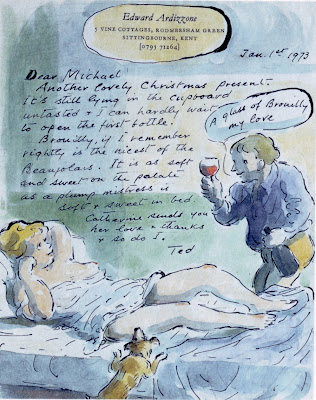 Edward Ardizzone
5 VINE COTTAGES, RODMERSHAM GREEN
SITTINGBOURNE, KENT
[0795 71264]
Jan. 1st 1973
Dear Michael
Another lovely Christmas present.
It's still lying in the cupboard
untasted & I can hardly wait
to open the first bottle.
Brouilly, if I remember
rightly is the nicest of the
Beaujolais. It is as soft
and sweet on the palate
as a plump mistress is
soft & sweet in bed.
Catherine sends you
her love & thanks
& so do I.
Ted
A glass of Brouilly
my love